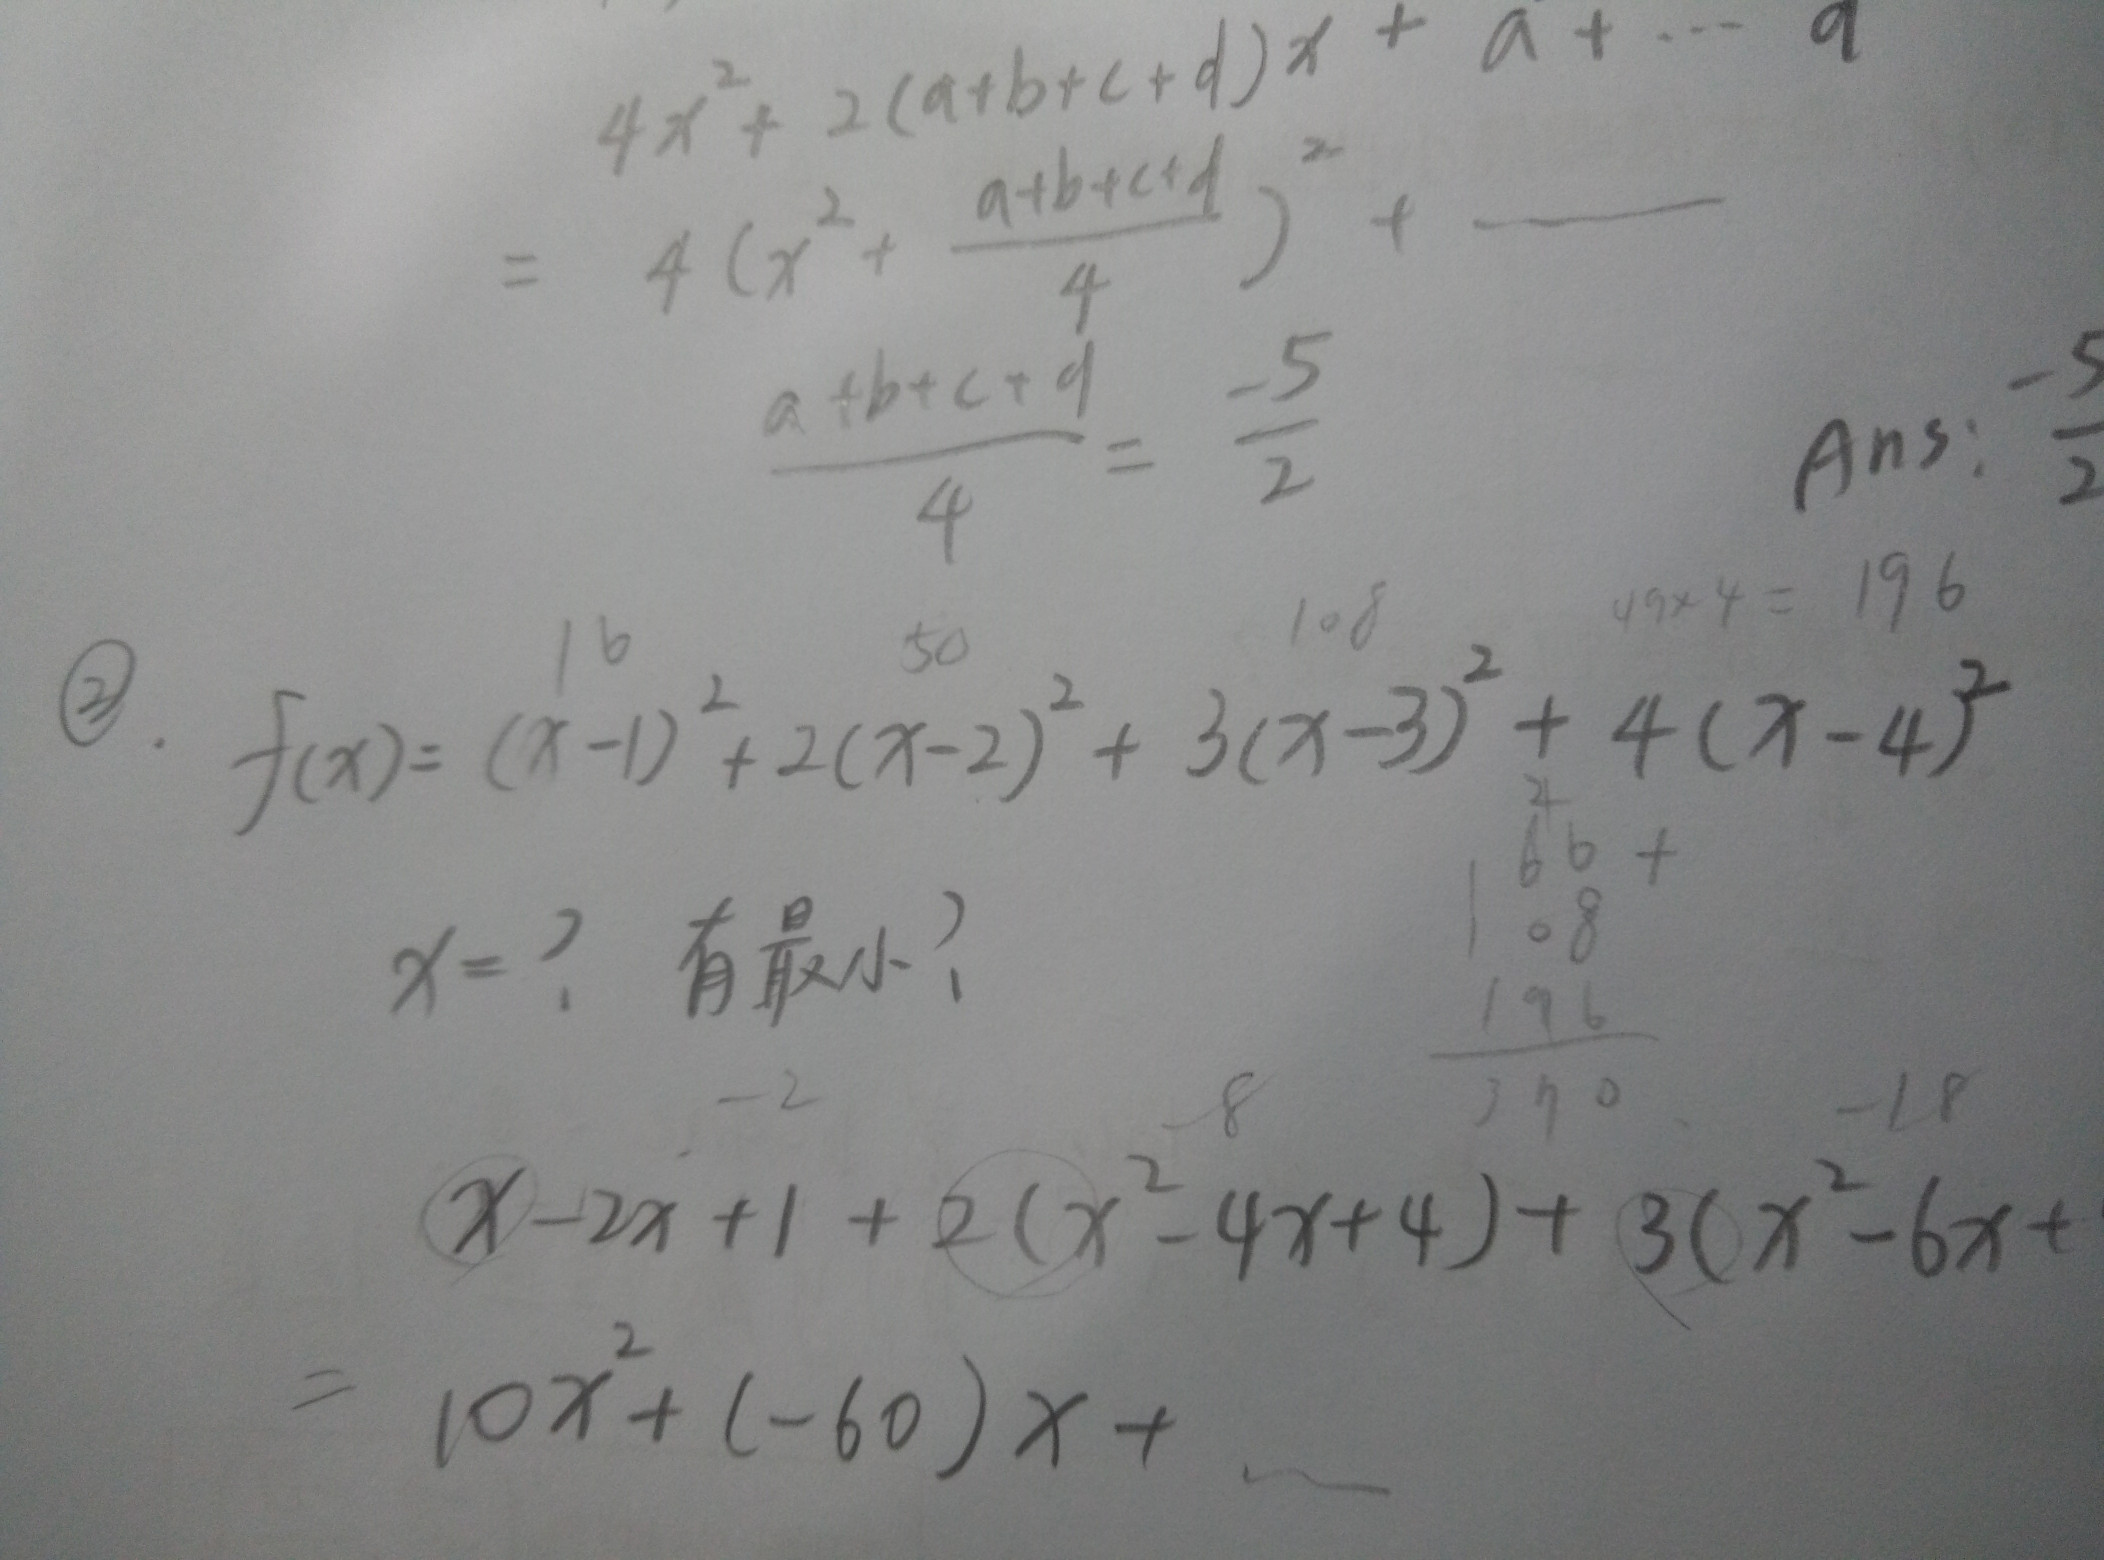 4x² + 2(a+b+c+d)x + a + ... d
= 4(x² + \frac{a+b+c+d}{4})² +
\frac{a+b+c+d}{4} = \frac{-5}{2}
Ans: \frac{-5}{2}
16 50 108 49×4 = 196
②. f(x) = (x-1)² + 2(x-2)² + 3(x-3)² + 4(x-4)²
66 +
108
x=? 有最小?
196
370
-2 -8 -18
x-2x+1 + 2(x²-4x+4) + 3(x²-6x+
= 10x² + (-60)x +